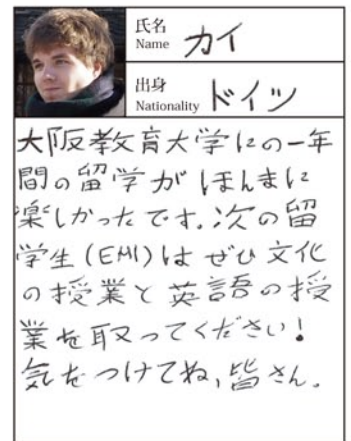 氏名
Name カイ
出身
Nationality ドイツ
大阪教育大学にの一年
間の留学がほんまに
楽しかったです。次の留
学生(EMI)はぜひ文化
の授業と英語の授
業を取ってください!
気をつけてね,皆さん。